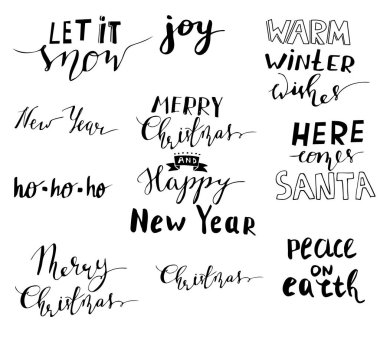 LET IT
snow
joy
WARM
WINTER
wishes
New Year
MERRY
Christmas
AND
Happy
New Year
HERE
comes
SANTA
ho•ho•ho
Merry
Christmas
Christmas
PEACE
ON
EARTH